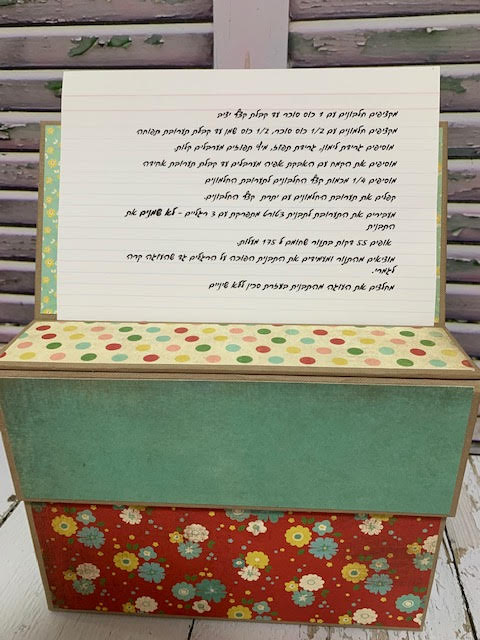 מקציפים חלבונים עם 1 כוס סוכר עד קבלת קצף יציב
מקציפים חלמונים עם 1/2 כוס סוכר, 1/2 כוס שמן עד קבלת תערובת תפוחה
מוסיפים גרידת לימון, גרידת תפוז, מיץ תפוזים מערבלים קלות.
מוסיפים את הקמח עם האבקת אפיה מערבלים עד קבלת תערובת אחידה
מוסיפים 1/4 מכמות קצף החלבונים לתערובת החלמונים
קפלים את תערובת החלמונים עם יתרת קצף החלבונים.
מעבירים את התערובת לתבנית צ'טורט מתפרקת עם 3 רגליים - לא שמנים את
התבנית
אופים 55 דקות בתנור שחומם ל 175 מעלות.
מוציאים מהתנור ומעמידים את התבנית הפוכה על הרגלים עד שהעוגה קרה
לגמרי.
מחלצים את העוגה מהתבנית בעזרת סכין ללא שיניים